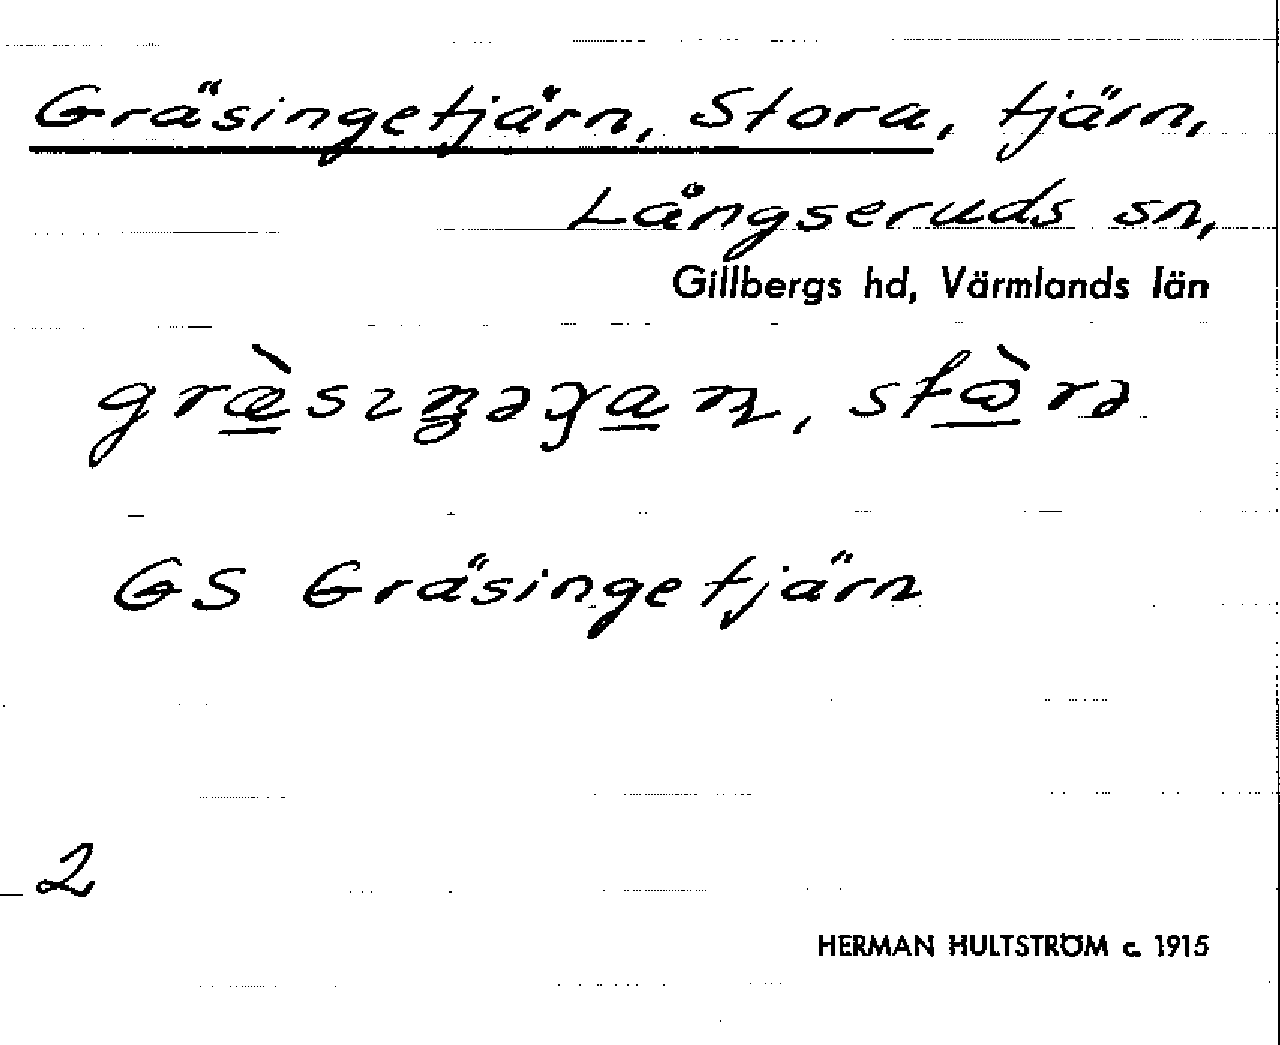 Gräsingetjärn, Stora, tjärn,
Långseruds sn,
Gillbergs hd, Värmlands län
græ̀sıŋəɣan, stɷ̀rə
GS Gräsingetjärn
2
HERMAN HULTSTRÖM c. 1915